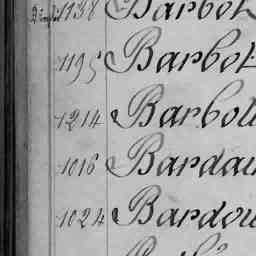 1138 Barbot
1195 Barbot
1214 Barbot
1016 Bardau
1024 Bardou